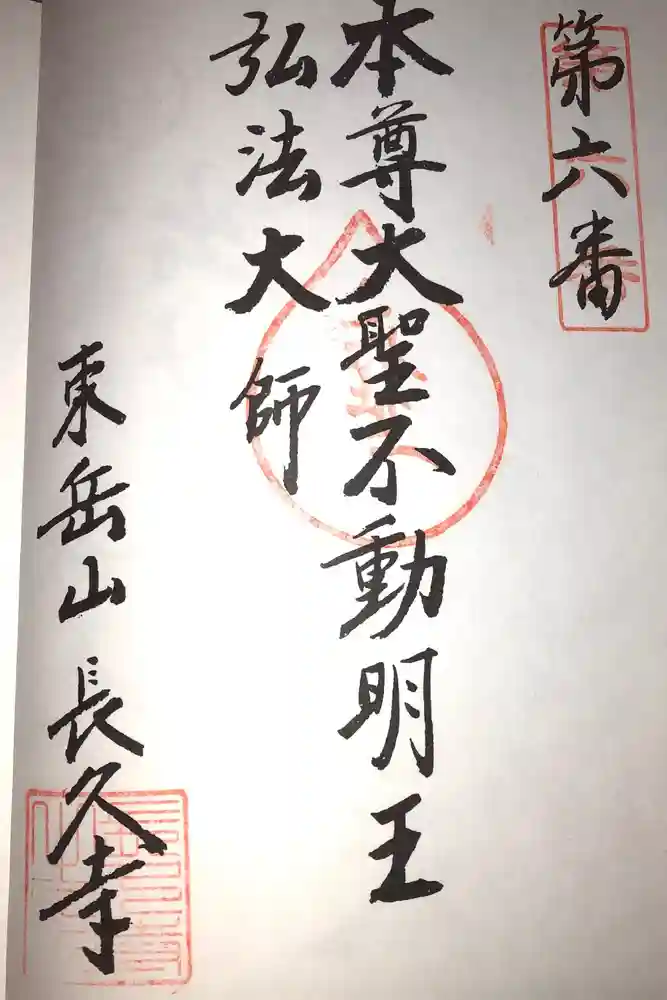 第六番
本尊大聖不動明王
弘法大師
東岳山長久寺